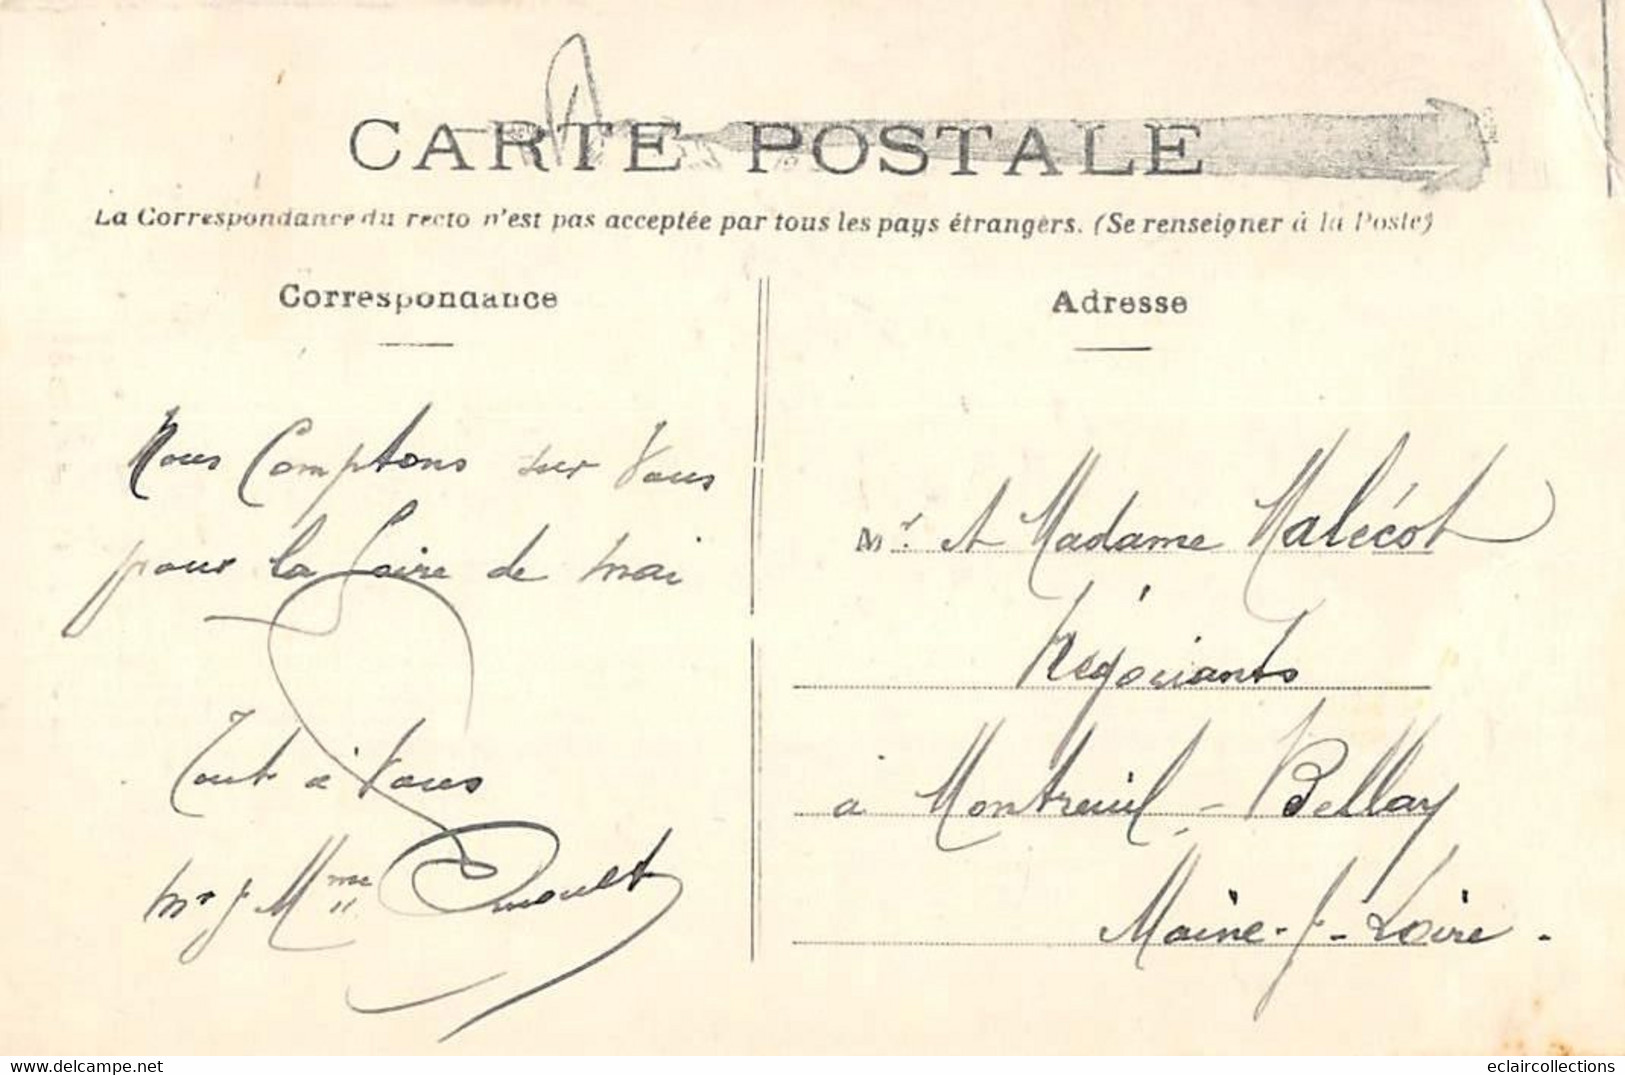 CARTE POSTALE
La Correspondance du recto n'est pas acceptée par tous les pays étrangers. (Se renseigner à la Poste)
Correspondance
Nous Comptons sur Vous
pour la foire de mai
Tout à Vous
Mr & Mme
Adresse
Mr. et Madame Malécot
Négociants
a Montreuil-Bellay
Maine-&-Loire.
eclaircollections